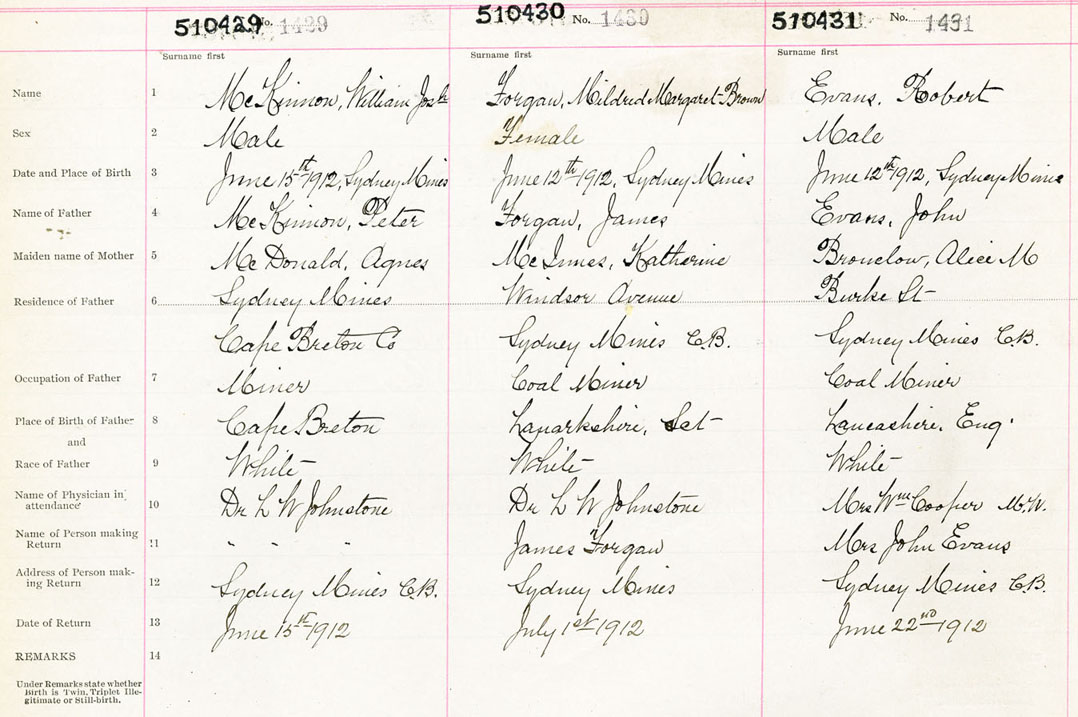 510429 No. 1429 510430 No. 1430 510431 No. 1431
Surname first Surname first Surname first
Name 1 McKinnon, William Josh Forgan, Mildred Margaret Brown Evans, Robert
Sex 2 Male Female Male
Date and Place of Birth 3 June 15th 1912, Sydney Mines June 12th 1912, Sydney Mines June 12th 1912, Sydney Mines
Name of Father 4 McKinnon, Peter Forgan, James Evans, John
Maiden name of Mother 5 McDonald, Agnes McInnes, Katherine Brouclow, Alice M
Residence of Father 6 Sydney Mines Windsor Avenue Burke St
Cape Breton Co Sydney Mines C.B. Sydney Mines C.B.
Occupation of Father 7 Miner Coal Miner Coal Miner
Place of Birth of Father 8 Cape Breton Lanarkshire, Sct Lancashire, Eng.
and
Race of Father 9 White White White
Name of Physician in
attendance 10 Dr L W Johnstone Dr L W Johnstone Mrs Wm Cooper M.W.
Name of Person making
Return 11 " " " James Forgan Mrs John Evans
Address of Person mak-
ing Return 12 Sydney Mines C.B. Sydney Mines Sydney Mines C.B.
Date of Return 13 June 15th 1912 July 1st 1912 June 22nd 1912
REMARKS 14
Under Remarks state whether
Birth is Twin, Triplet Ille-
gitimate or Still-birth.